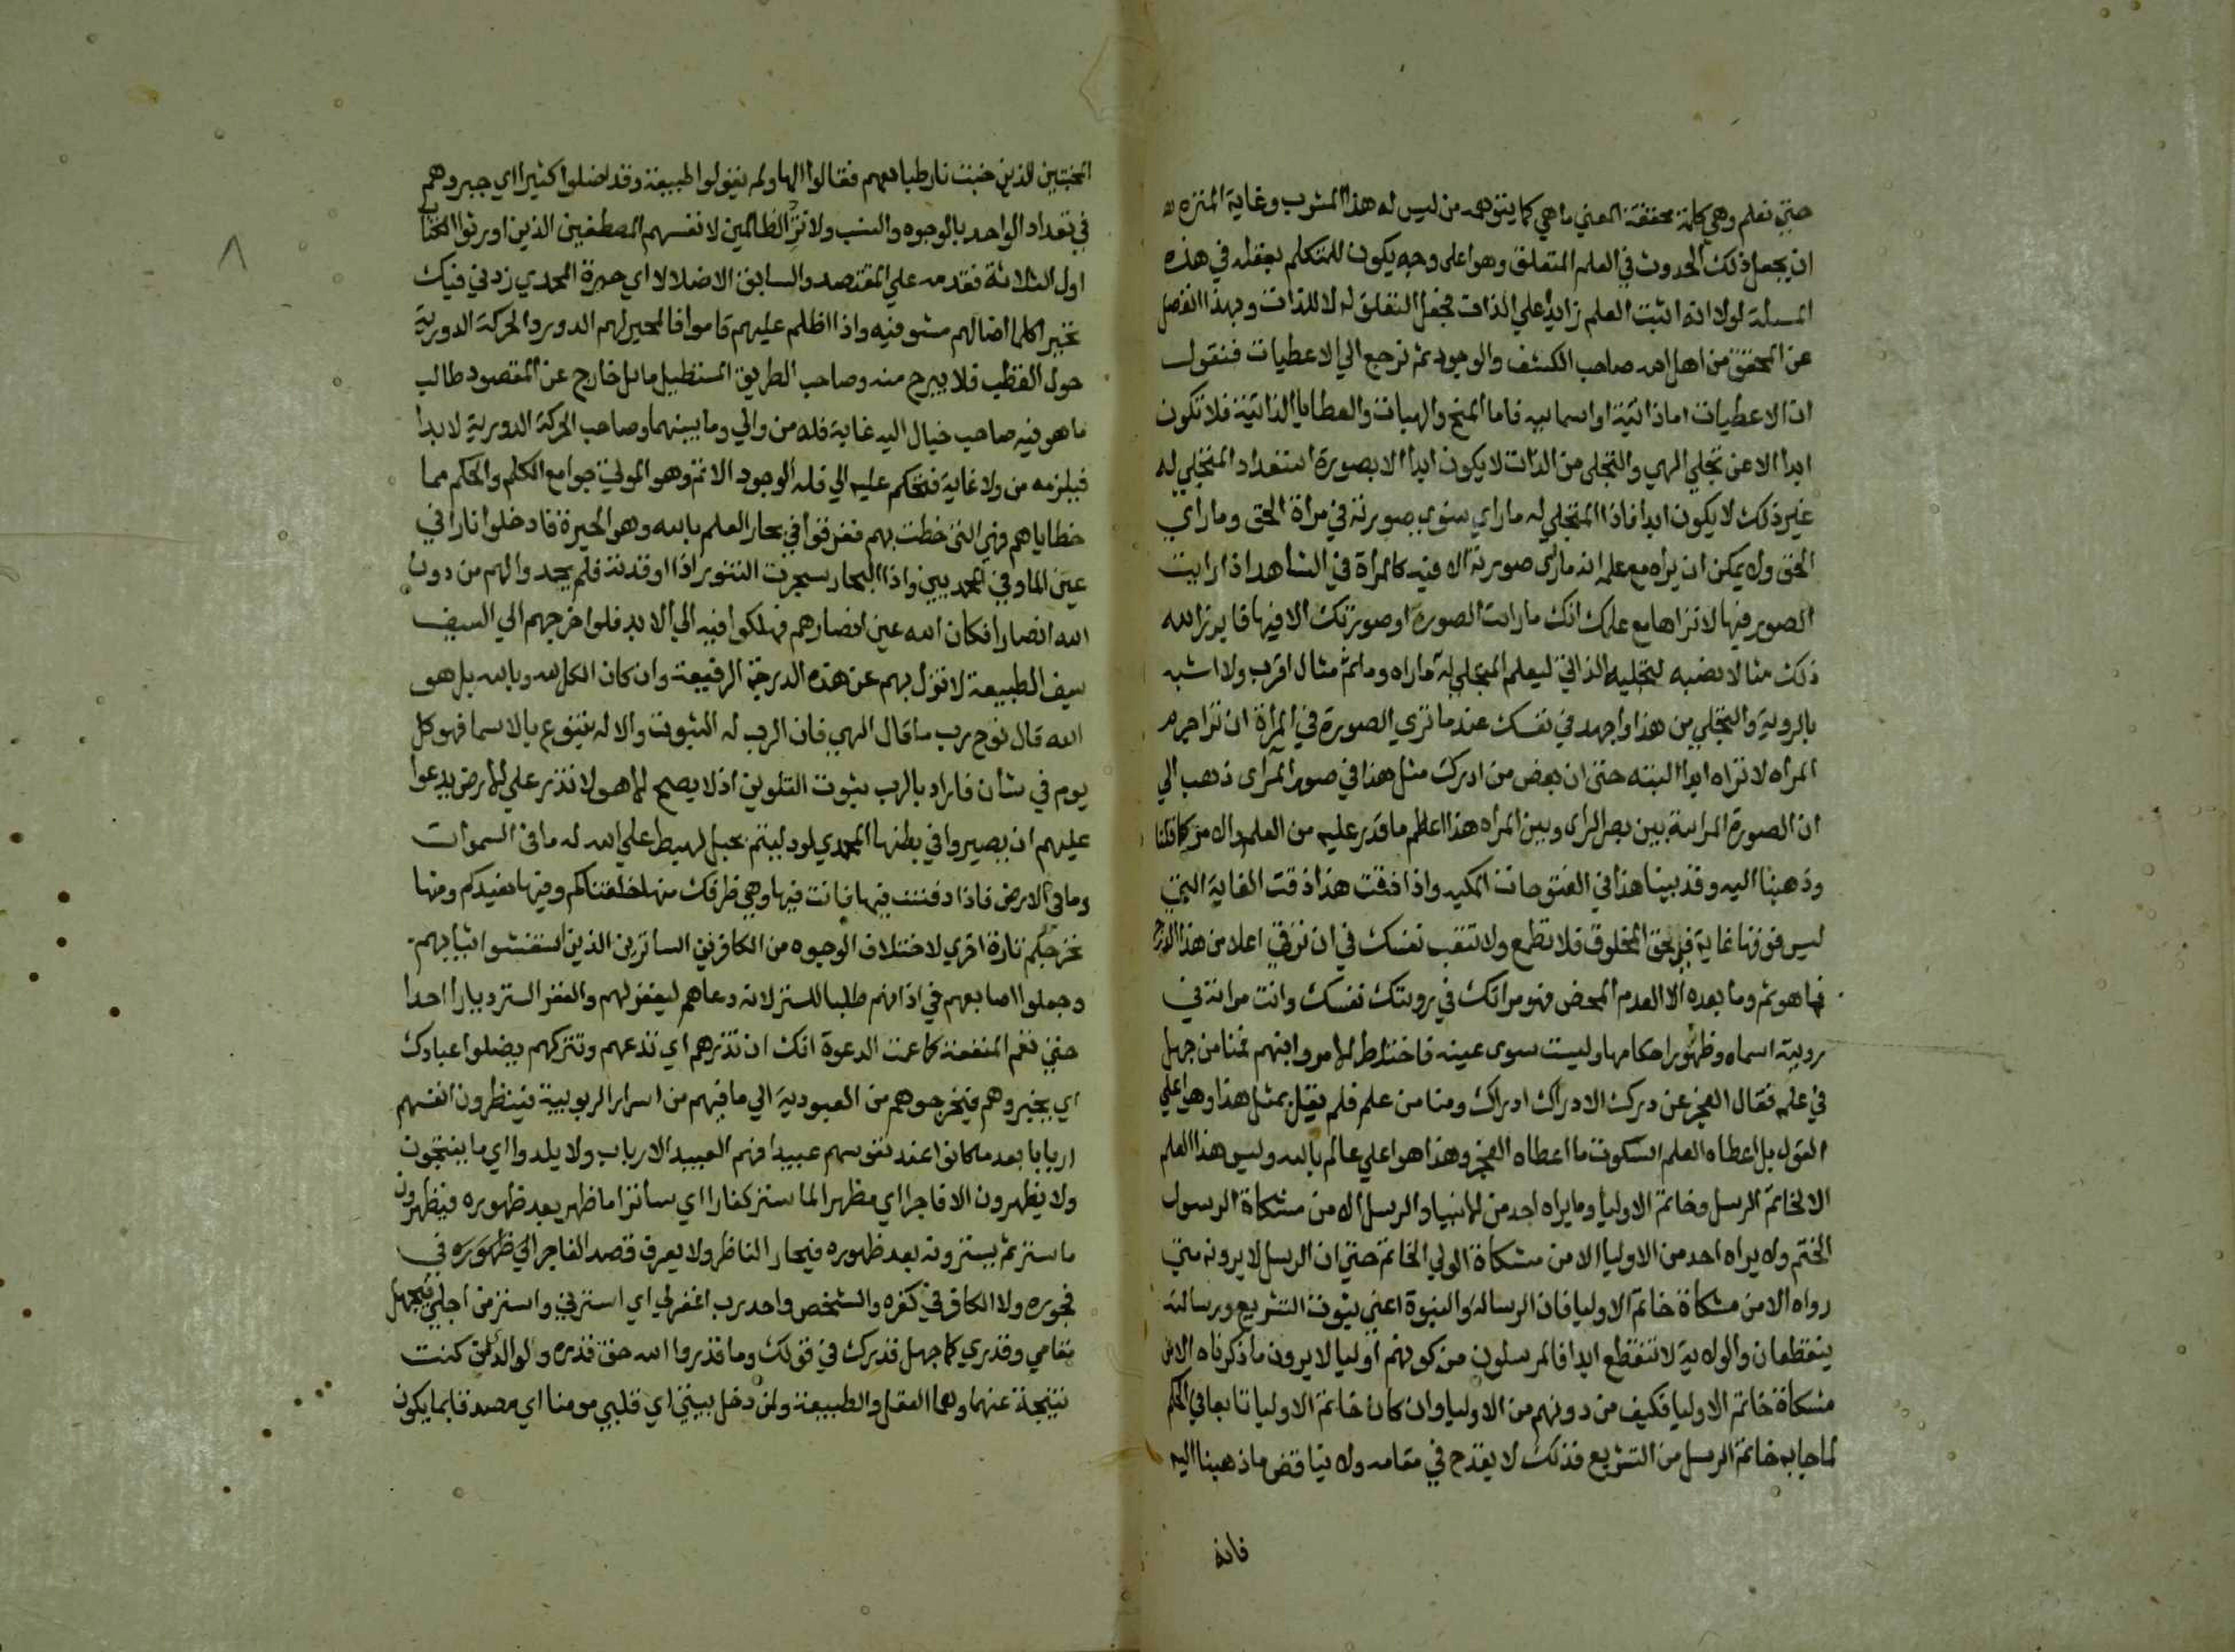 حتي نعلم وهي كلمة محققة المعني ما هي كما يتوهمه من ليس له هذا المشرب وغاية المنزه
ان يجعل ذلك الحدوث في العلم المتعلق وهو اعلى وجه يكون للمتكلم بعقله في هذه
المسلة لولا انه اثبت العلم زايدا علي الذات فجعل التعلق له لا للذات وبهذا انفصل
عن المحقق من اهل الله صاحب الكشف والوجود ثم نرجع الي الاعطيات فنقول
ان الاعطيات اما ذاتية او اسمايية فاما المنح والهبات والعطايا الذاتية فلا تكون
ابدا الا عن تجلي الهي والتجلي من الذات لا يكون ابدا الا بصورة استعداد المتجلي له
غير ذلك لا يكون ابدا فاذا المتجلي له ما راي سوي صورته في مراة الحق وما راي
الحق ولا يمكن ان يراه مع علمه انه ماراى صورته الا فيه كالمراة في الشاهد اذا رايت
الصور فيها لا تراها مع علمك انك ما رايت الصورة او صورتك الا فيها فابرز الله
ذلك مثالا نصبه لتجليه الذاتي ليعلم المتجلي له ما راه وما ثم مثال اقرب ولا اشبه
بالروية والتجلي من هذا واجهد في نفسك عند ما تري الصورة في المراة ان ترا جرم
المراه لا تراه ابدا البته حتى ان بعض من ادرك مثل هذا في صور المرآى ذهب الي
ان الصورة المراىية بين بصر الراى وبين المراه هذا اعظم ما قدر عليه من العلم والامر كما قلنا
وذهبنا اليه وقد بينا هذا في الفتوحات المكيه واذا ذقت هذا ذقت الغاية التي
ليس فوقها غاية في حق المخلوق فلا تطمع ولا تتعب نفسك في ان ترقي اعلا من هذا الدرج
فما هو ثم وما بعده الا العدم المحض فهو مراتك في رويتك نفسك وانت مراته في
رويته اسماه وظهور احكامها وليست سوى عينه فاختلط الامر وانبهم فمنا من جهل
في علمه فقال العجز عن درك الادراك ادراك ومنا من علم فلم يقل بمثل هذا وهو اعلي
القول بل اعطاه العلم السكوت ما اعطاه العجز وهذا هو اعلي عالم بالله وليس هذا العلم
الا لخاتم الرسل وخاتم الاوليا وما يراه احد من الانبيا والرسل الا من مشكاة الرسول
الختم ولا يراه احد من الاوليا الا من مشكاة الولي الخاتم حتي ان الرسل لا يرونه متي
رواه الا من مشكاة خاتم الاوليا فان الرسالة والنبوة اعني نبوة التشريع ورسالته
ينقطعان والولاية لا تنقطع ابدا فالمرسلون من كونهم اوليا لا يرون ما ذكرناه الا من
مشكاة خاتم الاوليا فكيف من دونهم من الاوليا وان كان خاتم الاوليا تابعا في الحكم
لما جا به خاتم الرسل من التشريع فذلك لا يقدح في مقامه ولا يناقض ما ذهبنا اليه
فانه
المخبتين الذين خبت نار طبايعهم فقالوا الها ولم يقولوا طبيعة وقد اضلوا كثيرا اي حيروهم
في تعداد الواحد بالوجوه والنسب ولا تزد الظالمين لانفسهم المصطفين الذين اورثوا الكتاب
اول الثلاثة فقدمه علي المقتصد والسابق الا ضلالا اي حيرة المحمدي زدني فيك
تحيرا كلما اضا لهم مشو فيه واذا اظلم عليهم قاموا فالمحير لهم الدور والحركة الدورية
حول القطب فلا يبرح منه وصاحب الطريق المستطيل مايل خارج عن المقصود طالب
ما هو فيه صاحب خيال اليه غاية فله من والي وما بينهما وصاحب الحركة الدورية لا بدا
فيلزمه من ولا غاية فتحكم عليه الي فله الوجود الاتم وهو الموتي جوامع الكلم والحكم مما
خطاياهم فهي التي خطت بهم فغرقوا في بحار العلم بالله وهو الحيرة فادخلوا نارا في
عين الما وفي المحمديين واذا البحار سجرت التنور اذا اوقدته فلم يجدوا لهم من دون
الله انصارا فكان الله عين انصارهم فهلكوا فيه الي الابد فلو اخرجهم الي السيف
سيف الطبيعة لانزل بهم عن هذه الدرجة الرفيعة وان كان الكل لله وبالله بل هو
الله قال نوح رب ما قال الهي فان الرب له الثبوت والاله يتنوع بالاسما فهو كل
يوم في شان فاراد بالرب ثبوت التلوين اذ لا يصح الا هو لا تذر علي الارض يدعوا
عليهم ان يصيروا في بطنها المحمدي لو دليتم بحبل لهبط علي الله له ما في السموات
وما في الارض فاذا دفنت فيها فانت فيها وهي ظرفك منها خلقناكم وفيها نعيدكم ومنها
نخرجكم تارة اخري لاختلاف الوجوه من الكافرين الساترين الذين استغشوا ثيابهم
وجعلوا اصابعهم في اذانهم طلبا للستر لانه دعاهم ليغفر لهم والغفر الستر ديارا احدا
حتي تعم المنفعة كما عمت الدعوة انك ان تذرهم اي تدعهم وتتركهم يضلوا عبادك
اي يحيروهم فيخرجوهم من العبودية الي ما فيهم من اسرار الربوبية فينظرون انفسهم
اربابا بعد ما كانوا عند نفوسهم عبيدا فهم العبيد الارباب ولا يلدوا اي ما ينتجون
ولا يظهرون الا فاجرا اي مظهرا لما ستر كفارا اي ساترا ما ظهر بعد ظهوره فيظهرون
ما ستر ثم يسترونه بعد ظهوره فيحار الناظر ولا يعرف قصد الفاجر الي ظهوره في
فجوره ولا الكافر في كفره والشخص واحد رب اغفر لي اي استرني واستر من اجلي فيجهل
مقامي وقدري كما جهل قدرك في قولك وما قدروا الله حق قدره ولوالدي من كنت
نتيجة عنهما وهما العقل والطبيعة ولمن دخل بيتي اي قلبي مومنا اي مصدقا بما يكون